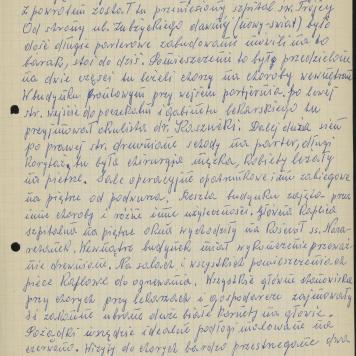 z powrotem został tu przeniesiony szpital św. Trójcy
Od strony ul. Zubrzyckiego dawniej (nowy-świat) było
dość długie parterowe zabudowanie mówili na to
barak, stoi do dziś. Pomieszczenie to było przedzielone
na dwie części tu leżeli chorzy na choroby wewnętrzne
W budynku frontowym przy wejściu portjernia, po lewej
str. wejście do poczekalni i gabinetu lekarskiego tu
przyjmował okulista dr. Dalej duża sień
po prawej str. drewniane schody na parter, długi
korytarz, tu była chirurgia męska. Kobiety leżały
na piętrze. Sale operacyjne opatrunkowe i inne zabiegowe
na piętrze od podwórza. Reszta budynku zajęta przez
inne choroby i różne inne użyteczności. Główna kaplica
szpitalna na piętrze okna wychodziły na Kościół ss. Naza-
retanek. Wewnątrz budynek miał wykończenie przeważ-
nie drewniane. Na salach i wszystkich pomieszczeniach
piece kaflowe do ogrzewania. Wszystkie główne stanowiska
przy chorych przy lekarzach i gospodarcze zajmowały
się zakonne ubrane duże białe kornety na głowie.
Porządki wszędzie idealne podłogi malowane na
czerwono. Wizyty do chorych bardzo przestrzegane dwa